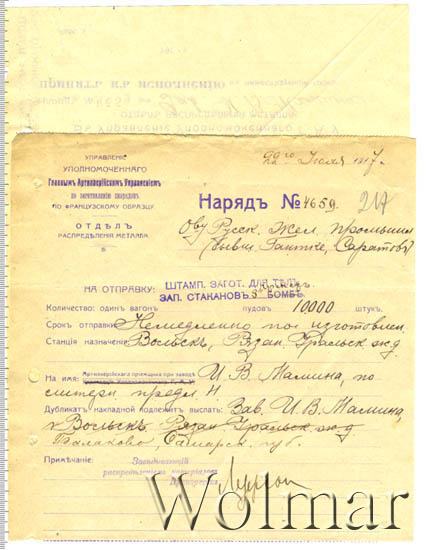 ПРИНЯТЬ КЪ ИСПОЛНЕНІЮ
УПРАВЛЕНІЕ
УПОЛНОМОЧЕННАГО
Главнымъ Артиллерійскимъ Управленіемъ
по заготовленію снарядовъ
ПО ФРАНЦУЗСКОМУ ОБРАЗЦУ.
ОТДѢЛЪ
РАСПРЕДѢЛЕНІЯ МЕТАЛЛА.
22го Іюля 1917г.
Нарядъ № 4659. 217
О-ву Русск. Жел. Промышлен
(бывш. Гантке, Саратовъ)
НА ОТПРАВКУ: ШТАМП. ЗАГОТ. ДЛЯ ТѢЛЪ
ЗАП. СТАКАНОВЪ 3" БОМБЪ
Количество: одинъ вагонъ пудовъ 10000 штукъ.
Срокъ отправки: Немедленно по изготовлен.
Станція назначенія: Вольскъ, Рязан. Уральск. ж.д.
На имя: Артиллерійскаго пріемщика при заводѣ И. В. Мамина, по
Дубликатъ накладной надлежитъ выслать: Зав. И. В. Мамина,
Вольскъ Рязан. Уральск. ж.д
Балаково, Самарск. губ.
Примѣчаніе: Завѣдывающій
распредѣленіемъ матеріаловъ
Wolmar